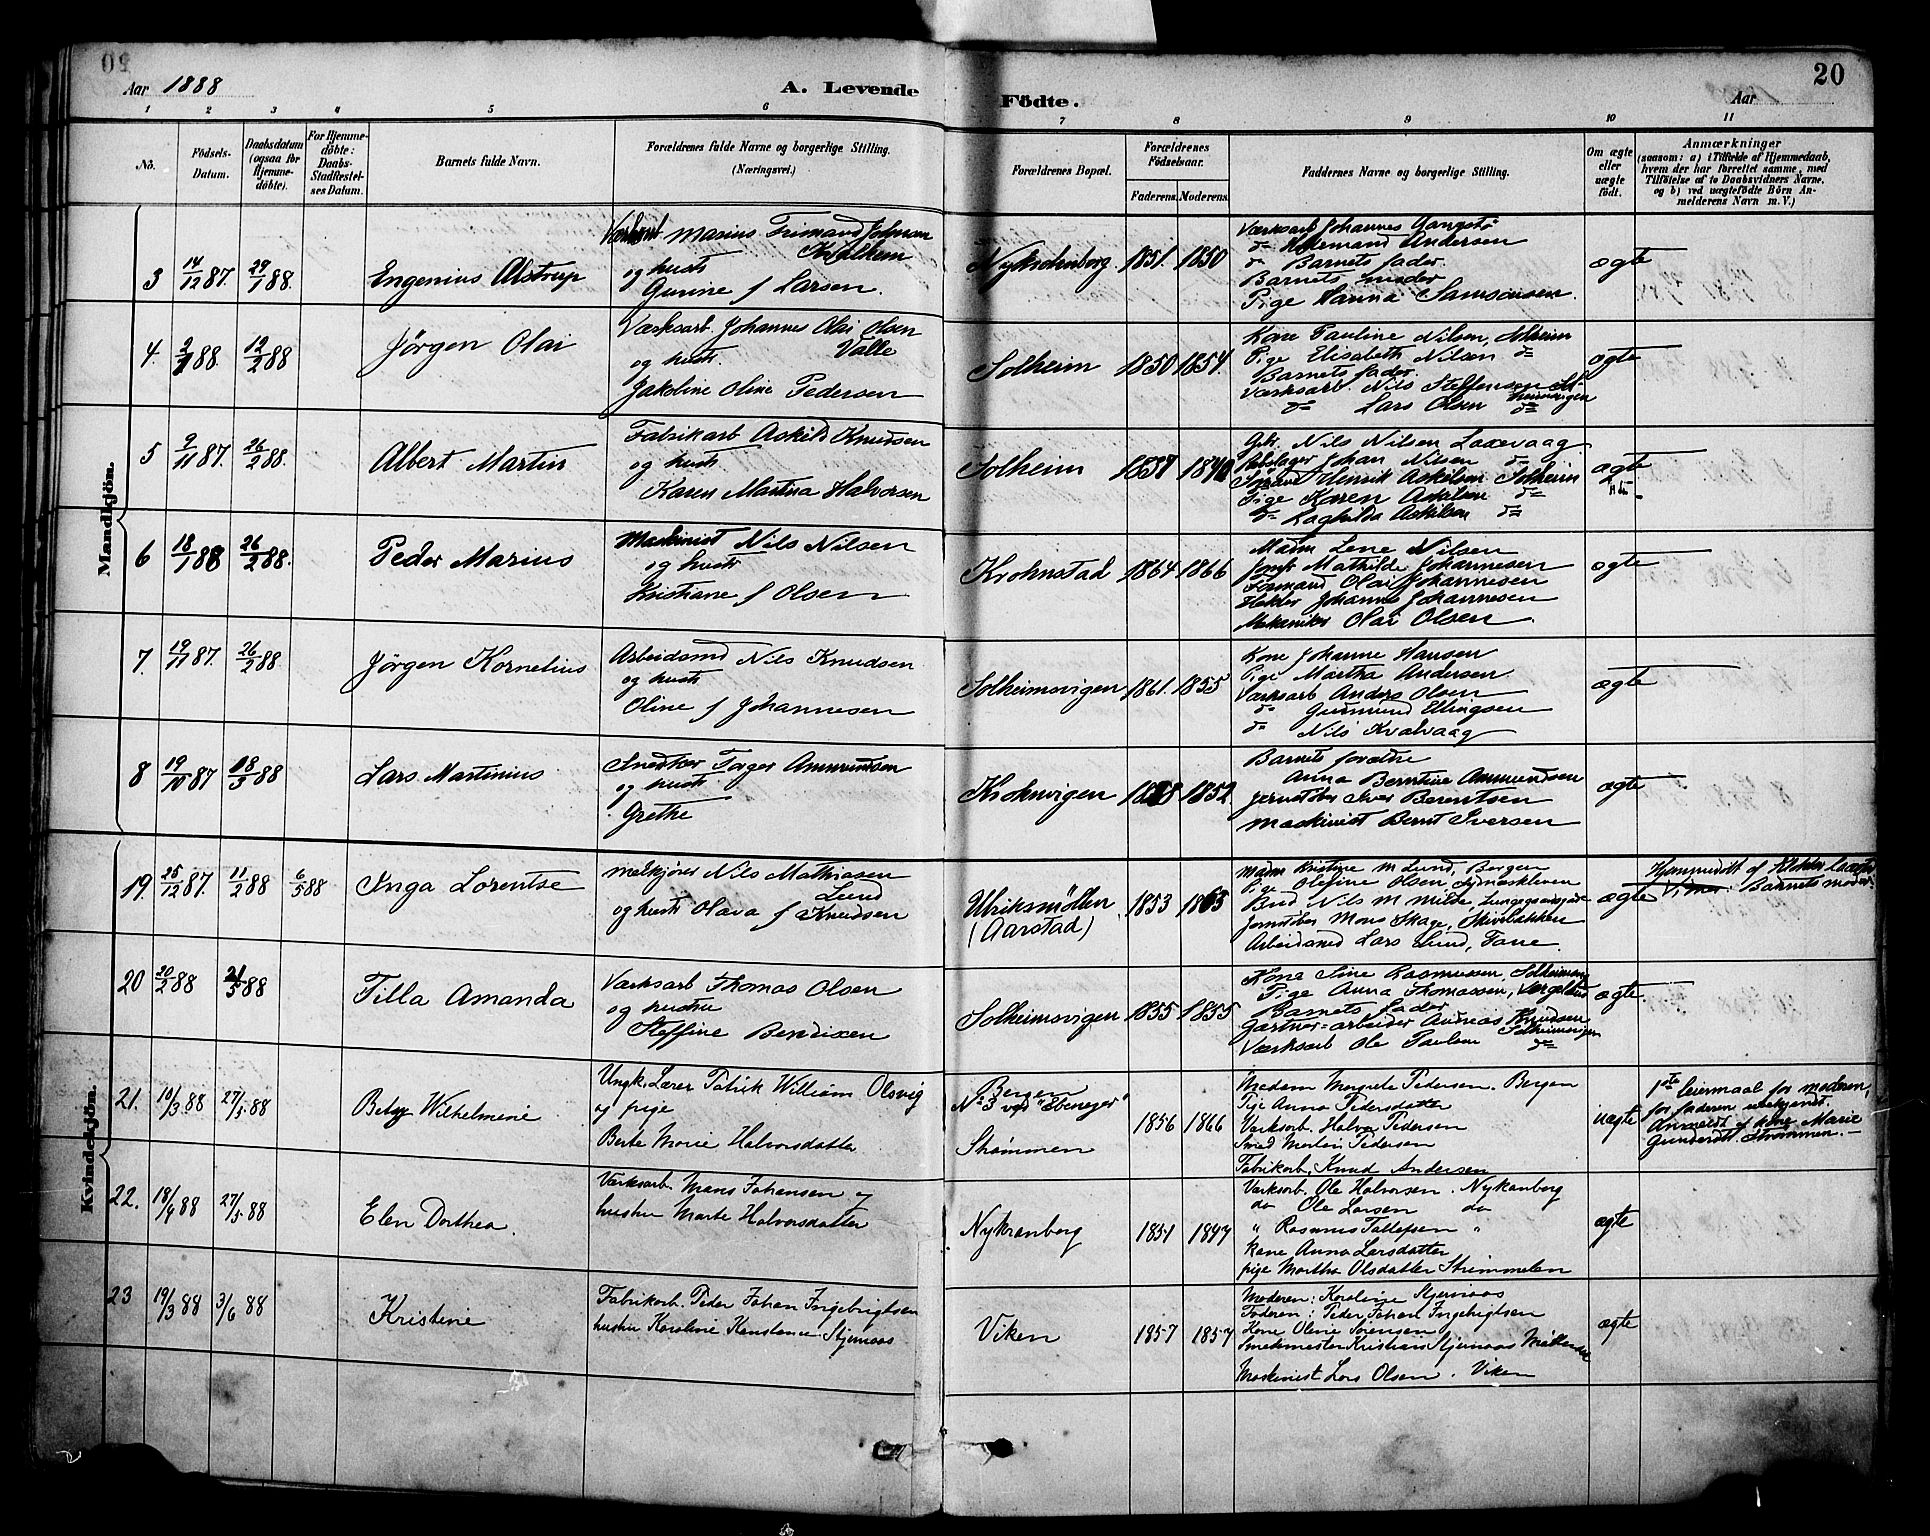 20
Aar 1888
A. Levende Födte.
Aar
20
1 2 3 4 5 6 7 8 9 10 11
No.
Födsels-Datum.
Daabsdatum (ogsaa for Hjemme-döbte).
For Hjemme-döbte: Daabs-Stadfæstel-ses Datum.
Barnets fulde Navn.
Forældrenes fulde Navne og borgerlige Stilling.
(Næringsvei.)
Forældrenes Bopæl.
Forældrenes Födselsaar.
Faderens. Moderens.
Faddernes Navne og borgerlige Stilling.
Om ægte eller uægte födt.
Anmærkninger
(saasom: a) i Tilfælde af Hjemmedaab,
hvem der har forrettet samme, med
Tilföielse af to Daabsvidners Navne,
og b) ved uægtefödte Börn An-
melderens Navn m. V.)
Mandkjön.
3 14/12 87. 29/1 88. Engenius Alstrup
Marius Frimand Johnsen
Kvalheim
og hustr
Gurine f Larsen.
1851. 1850
Værksarb Johannes
do Andersen
do Barnets fader.
Barnets moder
Pige Hanna Samsonsen.
ægte
4. 88. 12/2 88 Jørgen Olai
Værksarb. Johannes Olai Olsen
Valle
og hustr.
Jakoline Oline Pedersen
Solheim 1850 1854.
Kone Pauline Nilsen, Solheim
Pige Elisabeth Nilsen do
Barnets fader.
Værksarb Nils Steffensen
do Lars Olsen do
ægte
5 9/11 87. 26/2 88. Albert Martin
Fabrikarb Askild Knudsen
og hustr
Karen Martina Halvorsen
Solheim 1837
Nils Nilsen Laxevaag
Johan Nilsen do
Henrik Askilsen Solheim
Pige Karen Askilsen do
do Raghilda Askilsen do
ægte
6 18/1 88 26/2 88. Peder Marius
Maskinist Nils Nilsen
og hustr
Kristiane f Olsen
Krohnstad 1864 1866
Madm Lene Nilsen
Jomf Mathilde Johannesen
Formand Olai Johannesen
Johannes Johannesen
Mekaniker Olai Olsen.
ægte
7. 19/11 87. 26/2 88 Jørgen Kornelius
Arbeidsmd Nils Knudsen
og hustr
Oline f Johannesen
Solheimsvigen 1861. 1855
Kone Johanne Hansen
Pige Martha Andersen
Værksarb Anders Olsen
do Gudmund Ellingsen
do Nils Kvalvaag
ægte
8 19/10 87 18/3 88 Lars Martinius
Snedker Torger Ammundsen
og hustr
Grethe
Krohnvigen 1852
Barnets forældre
Anna Berntine Ammundsen
Jernstøber Iver Berentsen
Maskinist Bernt Iversen
ægte
Kvindekjön.
19. 25/12 87. 11/2 88 6/5 88 Inga Lorentse
Melkjører Nils Mathiasen
Lund
og hustr Olava f Knudsen
Ulriksmöllen
(Aarstad)
1853 1865
Madm Kristine M Lund, Bergen
Pige Olefine Olsen,
Bud Nils M Milde,
Jernstøber Mons Skage,
Arbeidsmd Lars Lund, Fane.
ægte
Hjemmedöbt af
Barnets moder.
20 20/2 88 21/5 88 Tilla Amanda
Værksarb Thomas Olsen
og hustru
Steffine Bendixen
Solheimsvigen 1855 1855
Kone Sine Rasmussen,
Pige Anna Thomassen,
Barnets fader
Gartner-arbeider Andreas Knudsen
Solheimsvigen
Værksarb Ole Paulsen do
ægte.
21. 10/3 88 27/5 88 Betzy Wilhelmine
Ungk. Lærer Patrik William Olsvig
og pige
Berte Marie Halvorsdatter
Bergen
No 3 ved "Ebenezer"
Strømmen
1856 1866
Madam Margrete Pedersen. Bergen
Pige Anna Pedersdatter
Værksarb. Halvor Pedersen
Smed Martin Pedersen
Fabrikarb. Knud Andersen
uægte
1ste leiermaal for moderen,
for faderen ubekjendt.
Anmeldt af kone Marie
Gundersdt. Strømmen.
22. 18/4 88 27/5 88 Elen Dorthea
Værksarb. Mons Johansen og
hustru Marte Halvorsdatter
Nykronborg 1851 1847
Værksarb. Ole Halvorsen. Nykronborg
do Ole Larsen do
" Rasmus Tollefsen "
kone Anna Larsdatter
pige Martha Olsdatter Strimmelen
ægte
23 19/3 88 3/6 88 Kristine
Fabrikarb. Peder Johan Ingebrigtsen
hustru Karoline Konstance Stjernaas
Viken 1857 1857
Moderen: Karoline Stjernaas
Faderen: Peder Johan Ingebrigtsen
Kone Oline Sørensen
Smedemester Kristian Stjernaas
Maskinist Lars Olsen. Viken
ægte